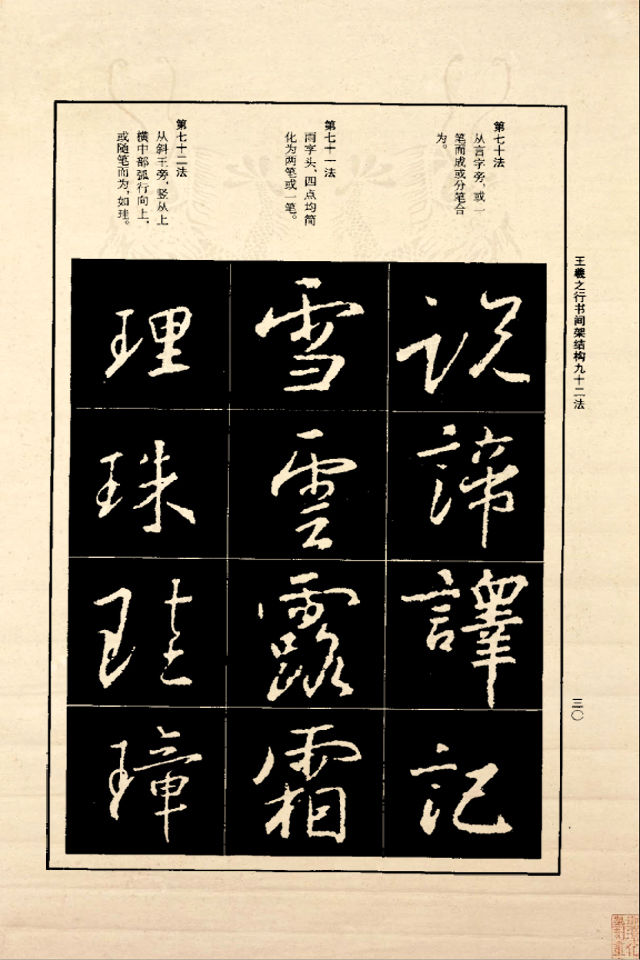 王羲之行书间架结构九十二法
三〇
第七十法
从言字旁，或一
笔而成或分笔合
为。
第七十一法
雨字头、四点均简
化为两笔或一笔。
第七十二法
从斜王旁，竖从上
横中部弧行向上，
或随笔而为，如珪。
説
諦
譯
記
雪
雲
露
霜
理
珠
珪
璋